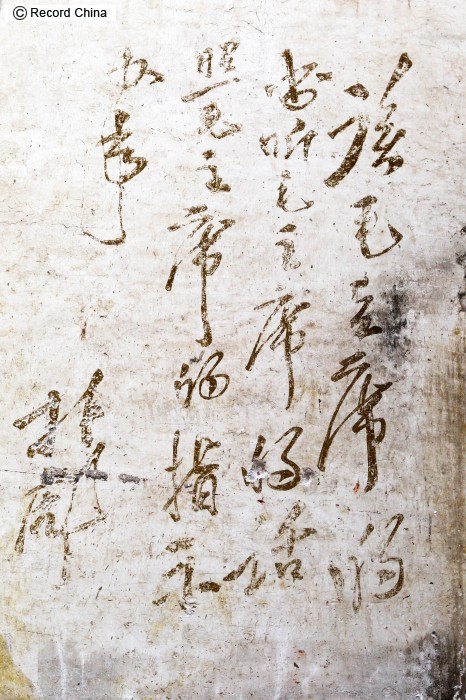 © Record China
读毛主席的
书听毛主席的话
照毛主席的指示
办事
林彪